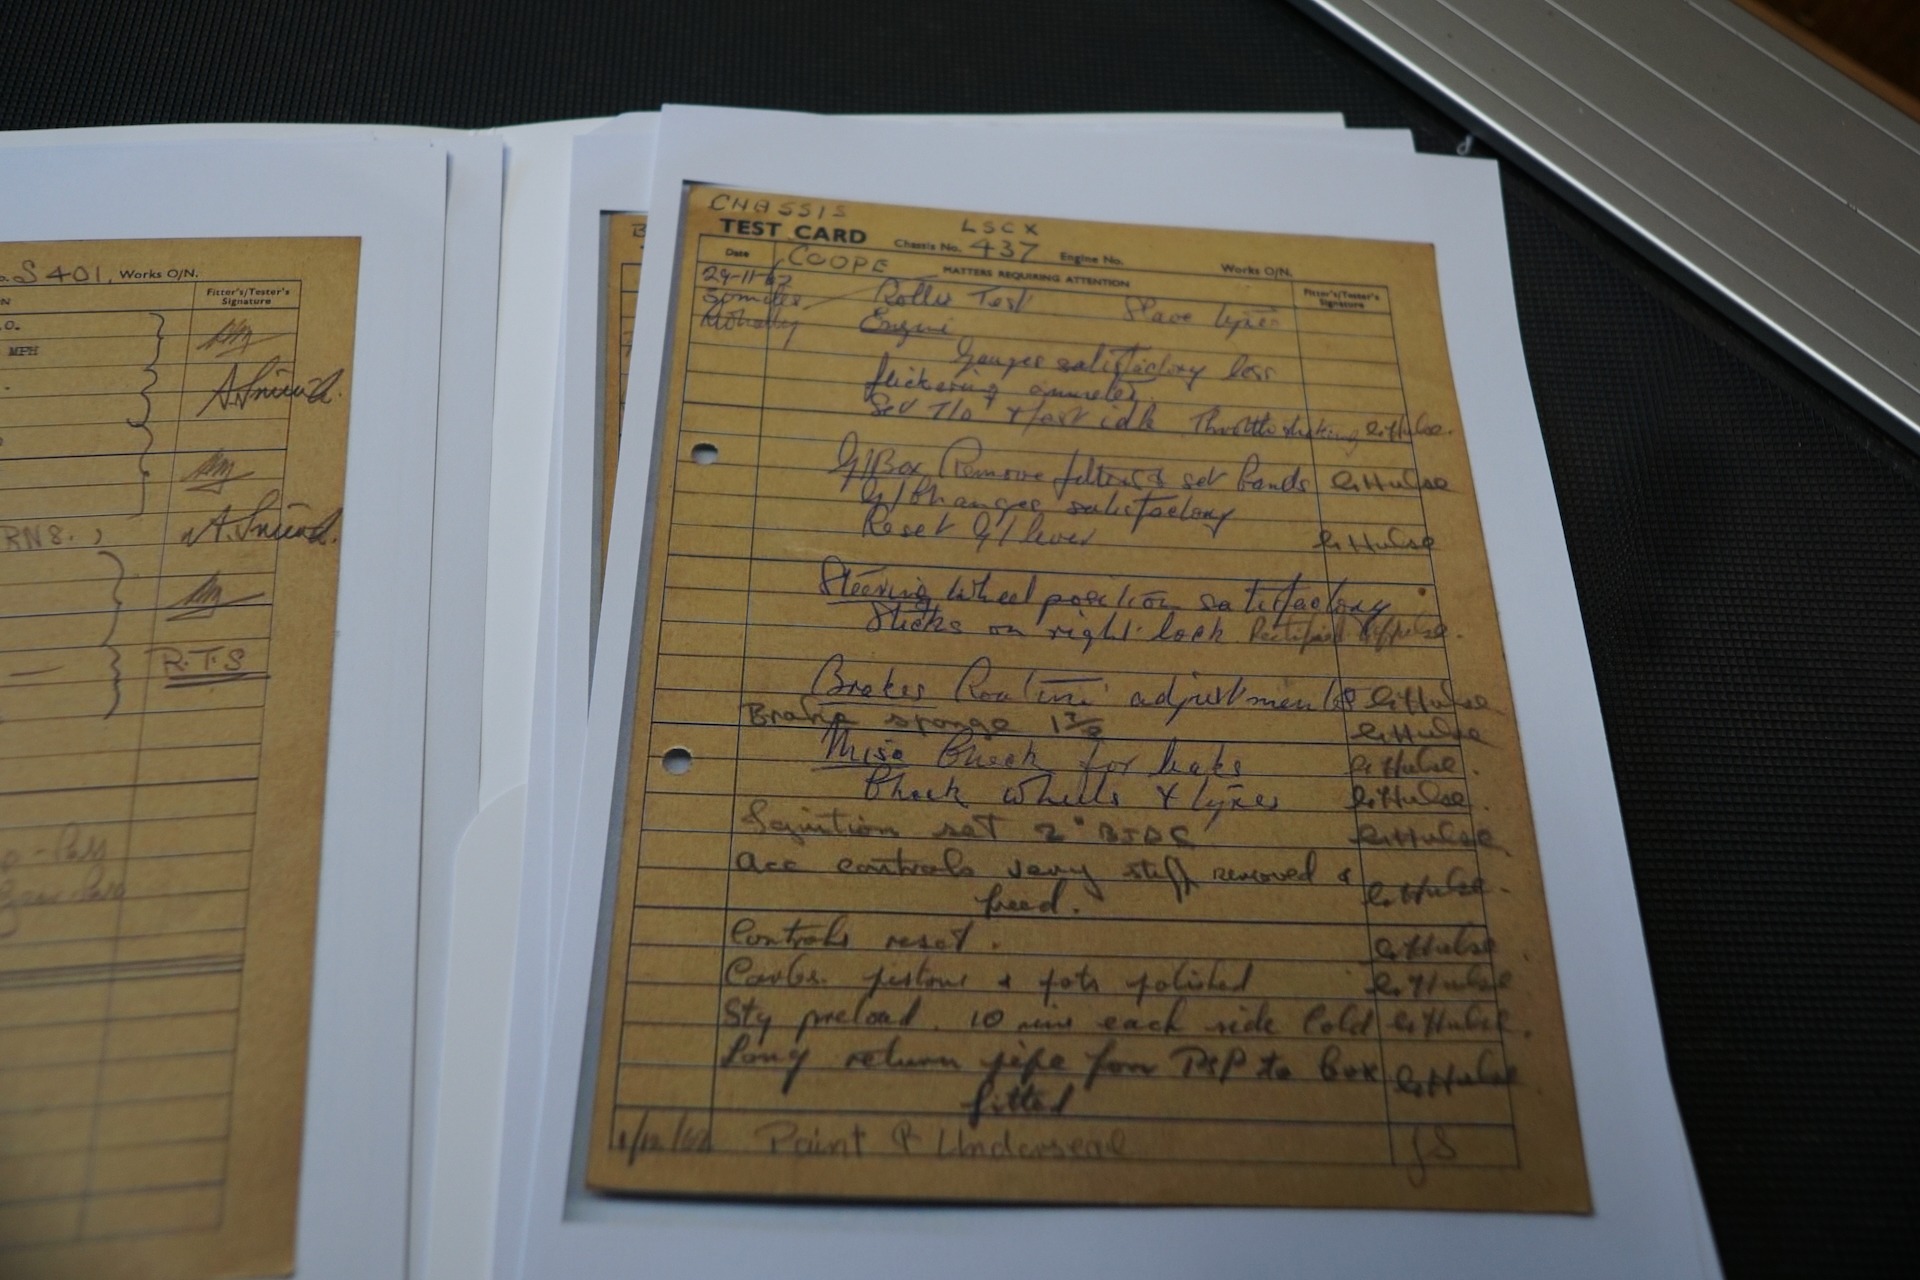 S 401, Works O/N.
Fitter's/Tester's
Signature
MPH
A. Smith
RN8. ,
A. Smith
R.T.S
CHASSIS
LSCX
TEST CARD Chassis No. 437 Engine No. Works O/N.
Date COOPE MATTERS REQUIRING ATTENTION Fitter's/Tester's
Signature
29-11-62 Roller Test Slave tyres
Engine
Gauges satisfactory less
flickering ammeter.
Set T/O & fast idle Throttle sticking G. Hulse.
G/Box Remove filter & set bands G. Hulse
G/Changes satisfactory
Reset G/lever G. Hulse
Steering Wheel position satisfactory
Sticks on right lock Rectified G. Hulse.
Brakes Routine adjustments G. Hulse
Brake sponge G. Hulse
Misc Check for leaks G. Hulse.
Check wheels & tyres G. Hulse.
Ignition set 2° BTDC G. Hulse
acc controls very stiff removed & G. Hulse.
freed.
Controls reset. G. Hulse.
Carbs. pistons & pots polished G. Hulse.
Stg preload. 10 each side Cold G. Hulse.
Long return pipe from PSP to box G. Hulse
fitted
1/12/62 Paint & Underseal JS